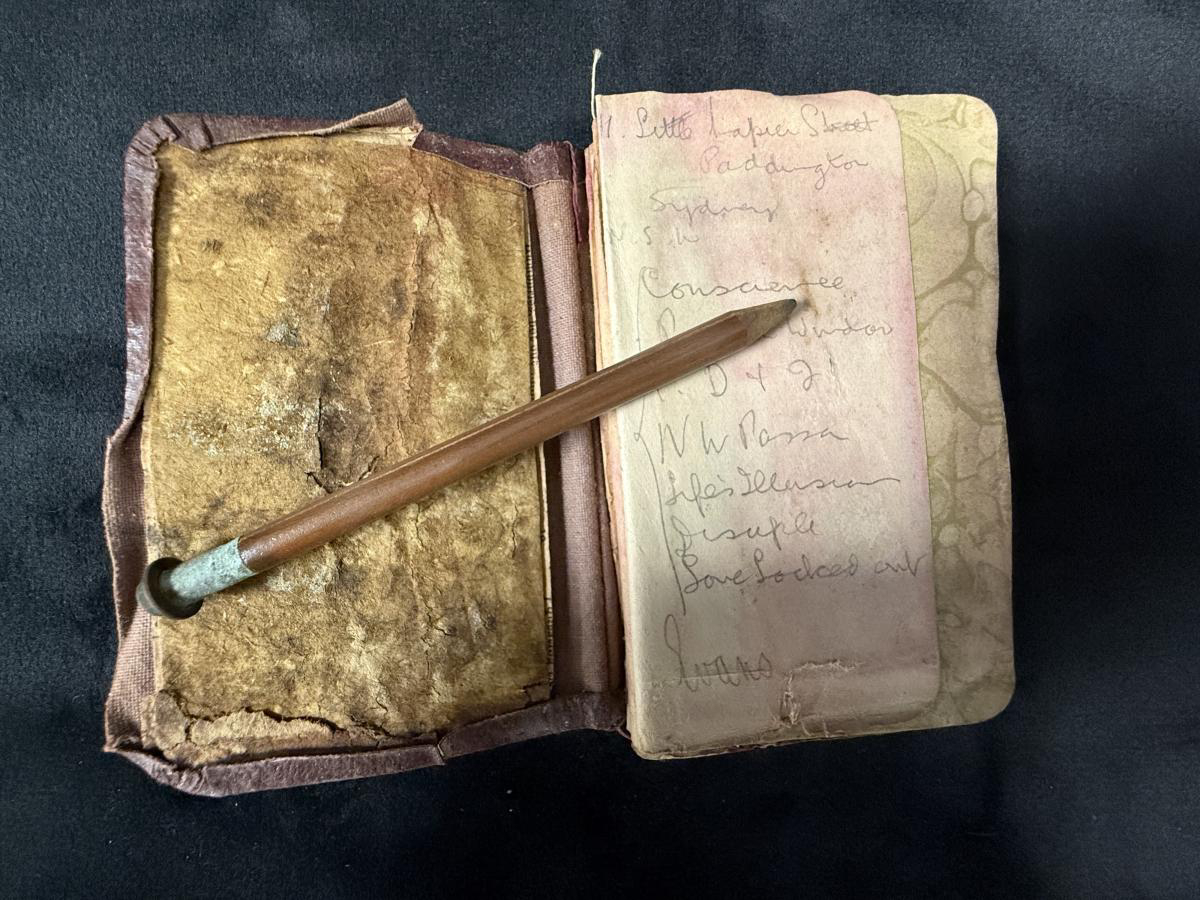 11. Little Napier Street
Paddington
Sydney
N. S. W
Conscience
Windsor
D & J
N W Passa
Life's Illusion
Disciple
Love Locked out
Evans